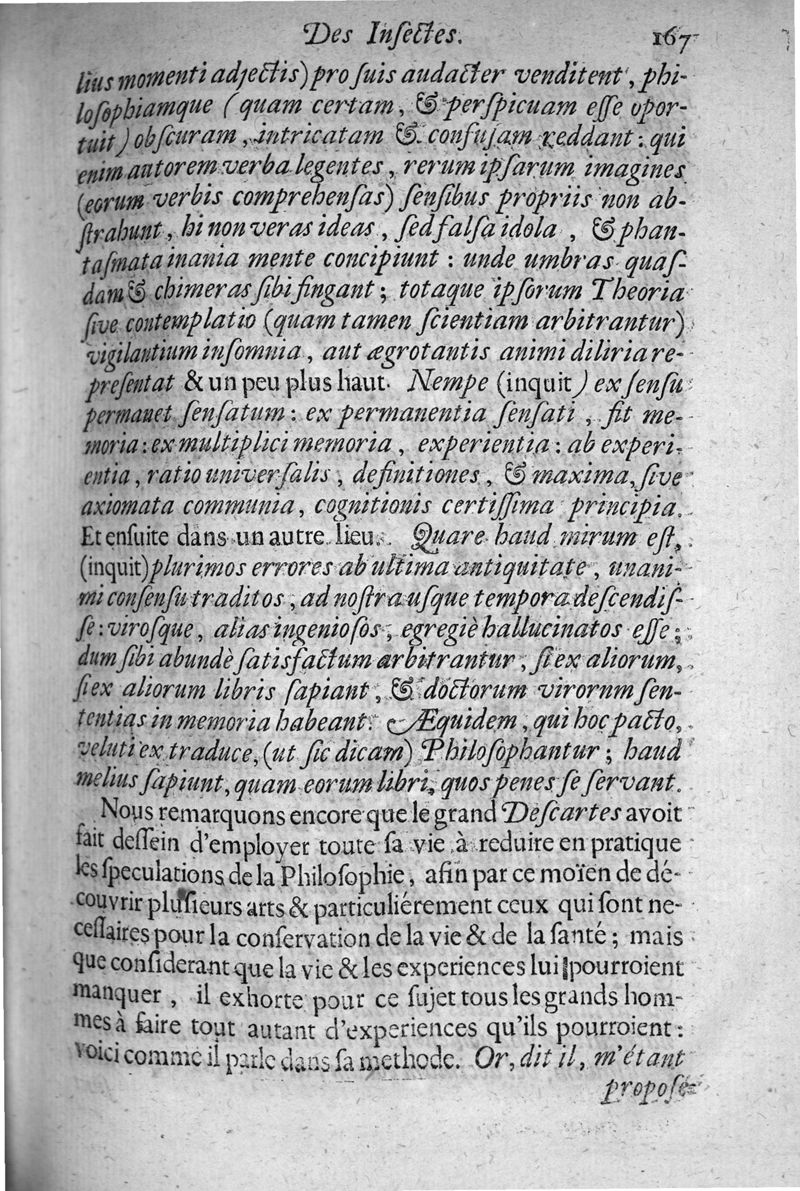 Des Inſectes. 167
lius momenti adjectis) pro ſuis audacter venditent, phi-
loſophiamque (quam certam, & perſpicuam eſſe opor-
tuit) obſcuram, intricatam & confuſam reddant: qui
enim autorem verba legentes, rerum ipſarum imagines
(eorum verbis comprehenſas) ſenſibus propriis non ab-
ſtrahunt, hi non veras ideas, ſed falſa idola, & phan-
taſmata inania mente concipiunt: unde umbras quaſ-
dam & chimeras ſibi fingant; totaque ipſorum Theoria
ſive contemplatio (quam tamen ſcientiam arbitrantur)
vigilantium inſomnia, aut ægrotantis animi diliria re-
preſentat & un peu plus haut. Nempe (inquit) ex ſenſu
permanet ſenſatum: ex permanentia ſenſati, fit me-
moria: ex multiplici memoria, experientia: ab experi-
entia, ratio univerſalis, definitiones, & maxima, ſive
axiomata communia, cognitionis certiſſima principia.
Et enſuite dans un autre lieu. Quare haud mirum eſt,
(inquit) plurimos errores ab ultima antiquitate, unani-
mi conſenſu traditos, ad noſtra uſque tempora deſcendiſ-
ſe: viroſque, alias ingenioſos, egregiè hallucinatos eſſe;
dum ſibi abundè ſatisfactum arbitrantur, ſi ex aliorum,
ſi ex aliorum libris ſapiant, & doctorum virornm ſen-
tentias in memoria habeant. Æquidem, qui hoc pacto,
veluti ex traduce, (ut ſic dicam) Philoſophantur; haud
melius ſapiunt, quam eorum libri, quos penes ſe ſervant.
Nous remarquons encore que le grand Deſcartes avoit
fait deſſein d'employer toute ſa vie à reduire en pratique
les ſpeculations de la Philoſophie, afin par ce moïen de dé-
couvrir pluſieurs arts & particuliérement ceux qui ſont ne-
ceſſaires pour la conſervation de la vie & de la ſanté; mais
que conſiderant que la vie & les experiences lui pourroient
manquer, il exhorte pour ce ſujet tous les grands hom-
mes à faire tout autant d'experiences qu'ils pourroient:
voici comme il parle dans ſa methode. Or, dit il, m'étant
propoſé